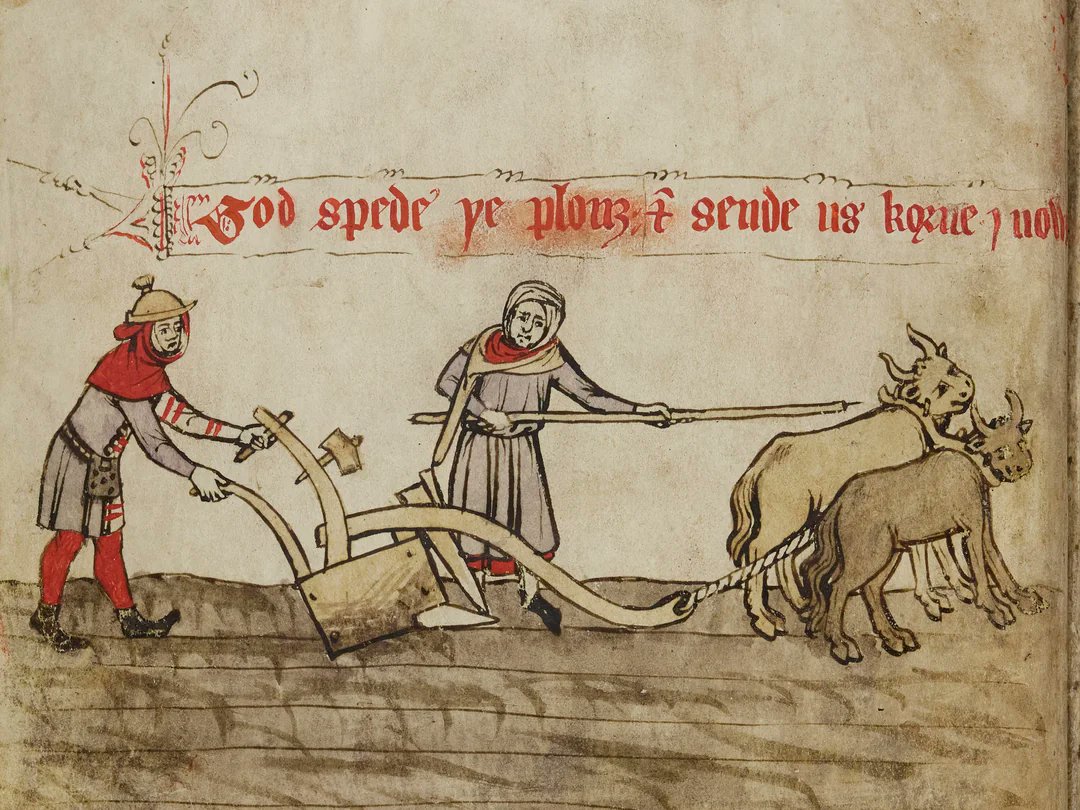 God spede ye plouȝ ⁊ sende us korne